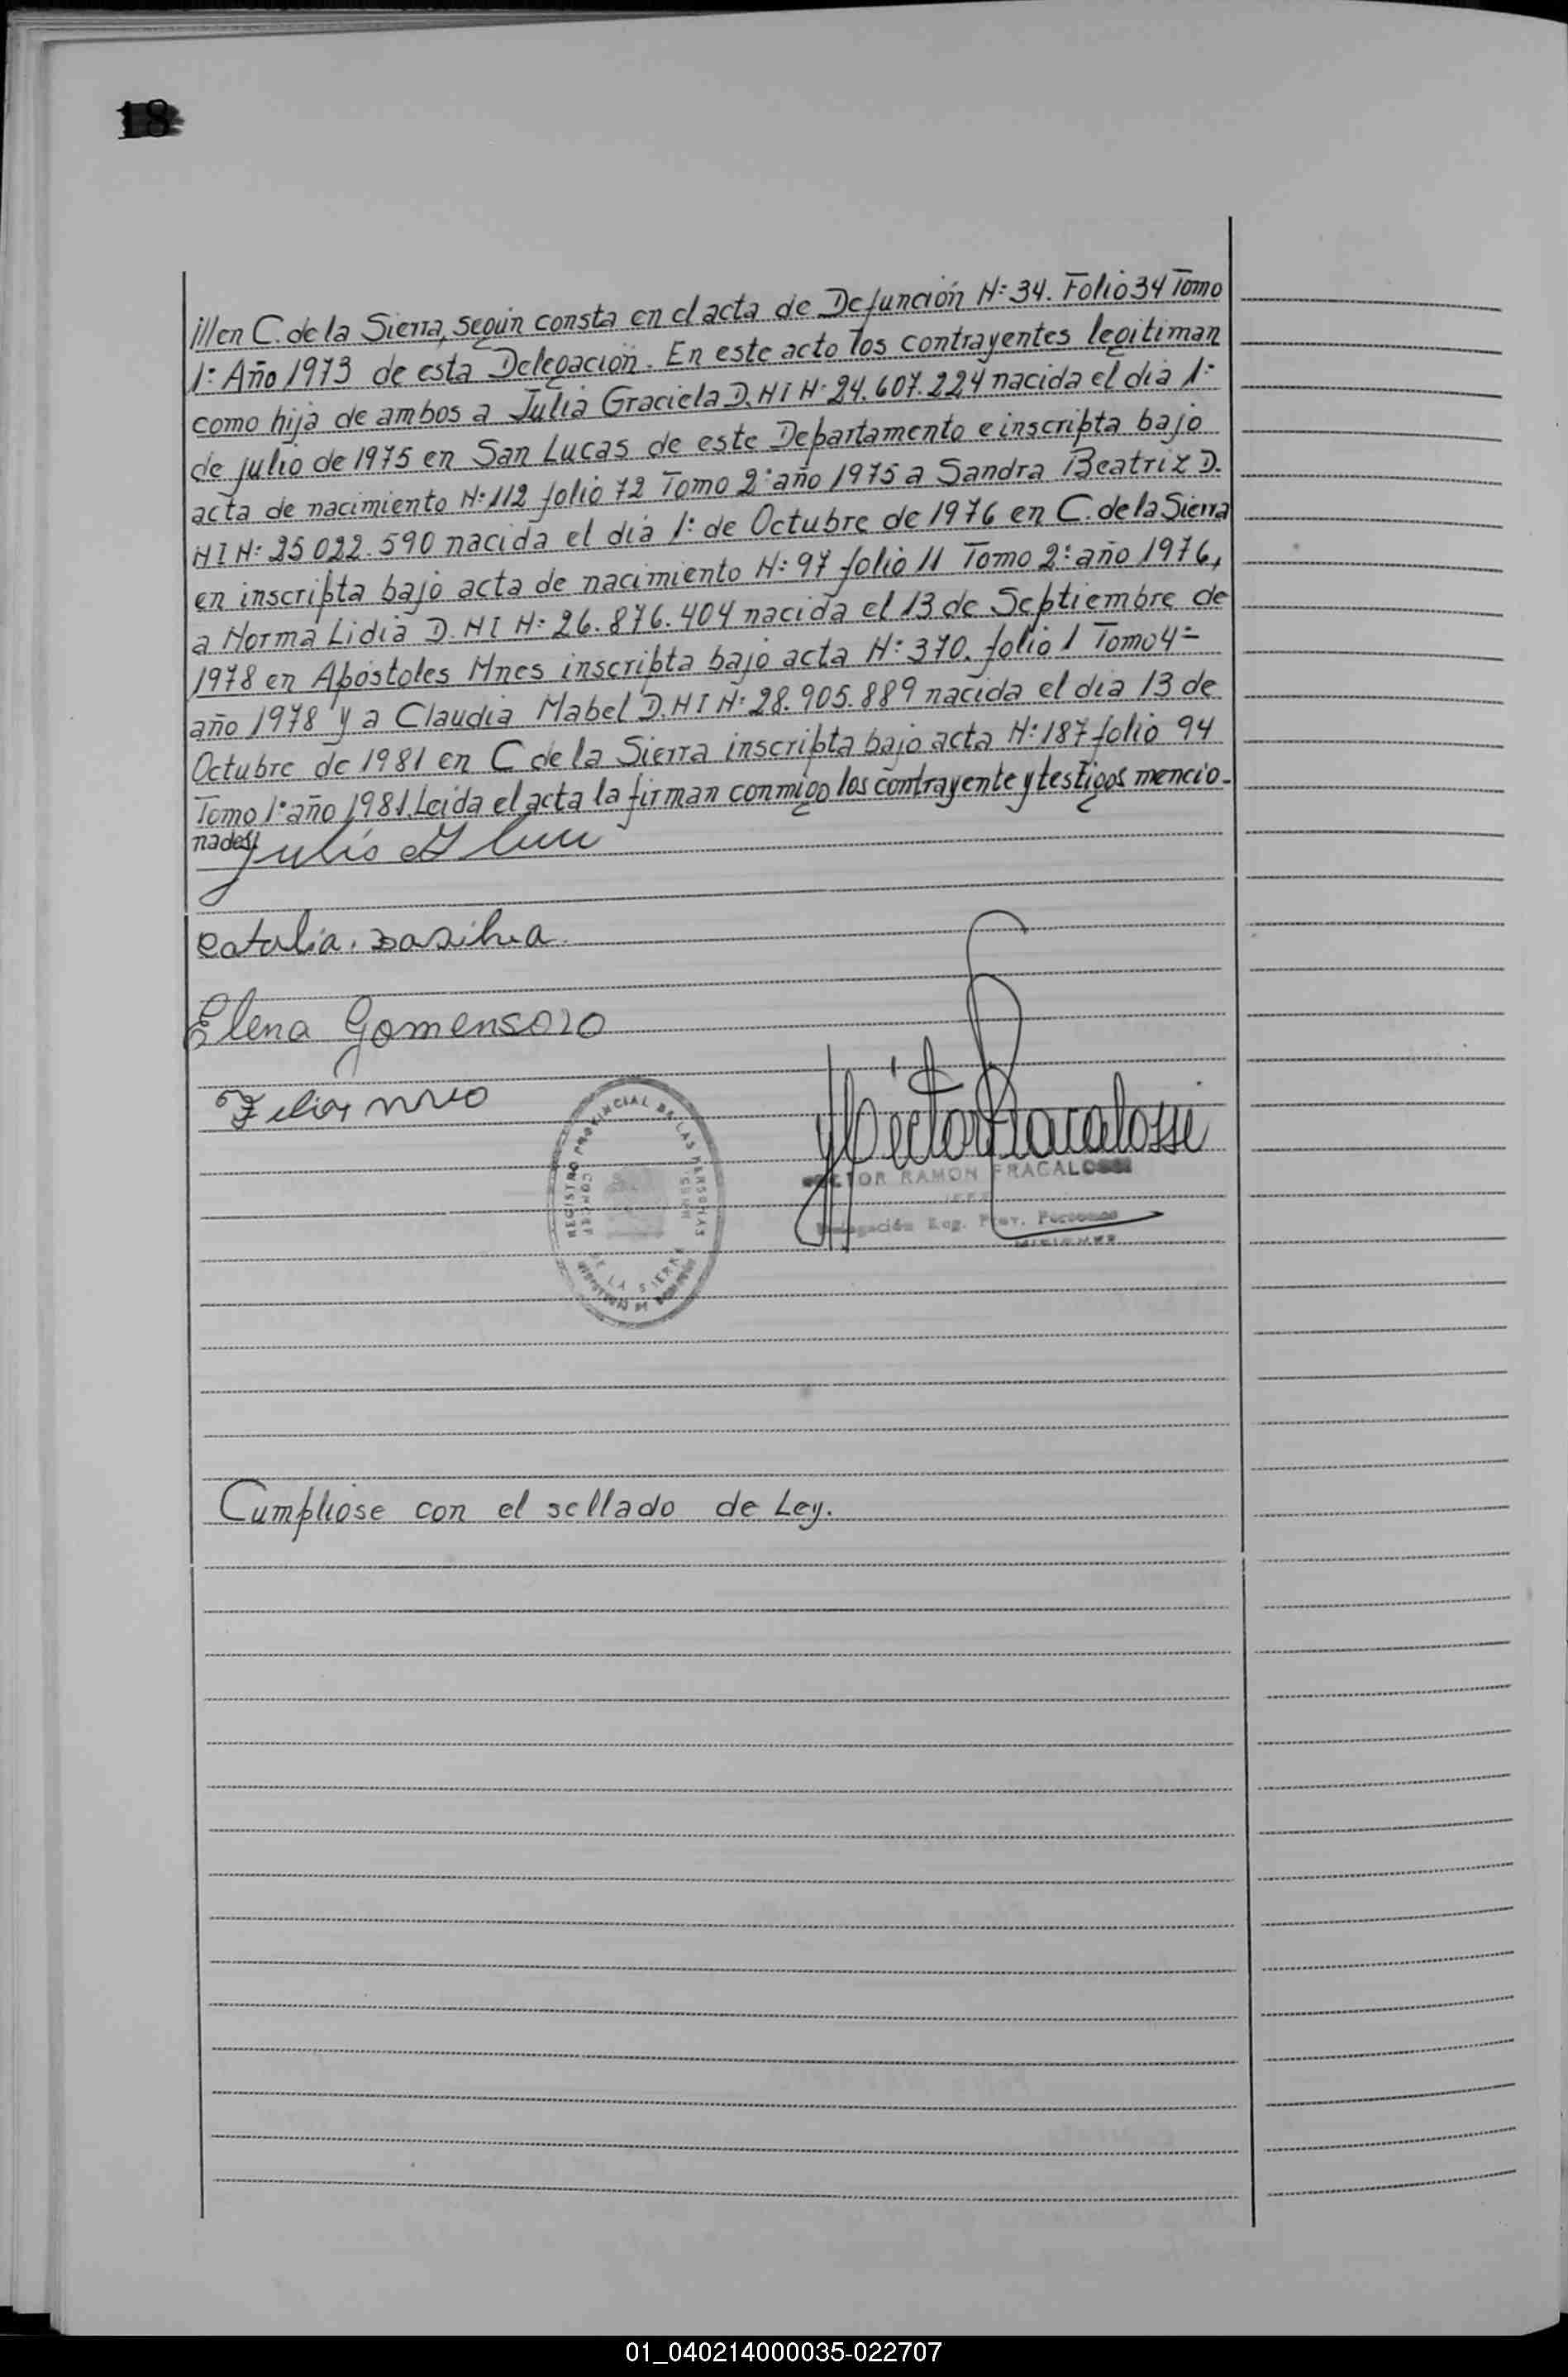 18
///en C. de la Sierra, según consta en el acta de Defunción N: 34. Folio 34 Tomo
1: Año 1973 de esta Delegación. En este acto los contrayentes legitiman
como hija de ambos a Julia Graciela D.N I N: 24.607.224 nacida el día 1:
de julio de 1975 en San Lucas de este Departamento e inscripta bajo
acta de nacimiento N: 112 folio 72 Tomo 2: año 1975 a Sandra Beatriz D.
N I N: 25 022.590 nacida el día 1: de Octubre de 1976 en C. de la Sierra
en inscripta bajo acta de nacimiento N: 97 folio 11 Tomo 2: año 1976,
a Norma Lidia D. N I N: 26.876.404 nacida el 13 de Septiembre de
1978 en Apóstoles Mnes inscripta bajo acta N: 370. folio 1 Tomo 4=
año 1978 y a Claudia Mabel D. N I N: 28.905.889 nacida el día 13 de
Octubre de 1981 en C de la Sierra inscripta bajo acta N: 187 folio 94
Tomo 1: año 1981. Leída el acta la firman conmigo los contrayente y testigos mencio-
nados//
Julio
Catalia. Dasilva.
Elena Gomensoro
REGISTRO PROVINCIAL DE LAS PERSONAS
DE LA SIERRA
HECTOR RAMON FRACALOSSI
JEFE
Delegación Reg. Prov. Personas
MISIONES
Cumplióse con el sellado de Ley.
01_040214000035-022707